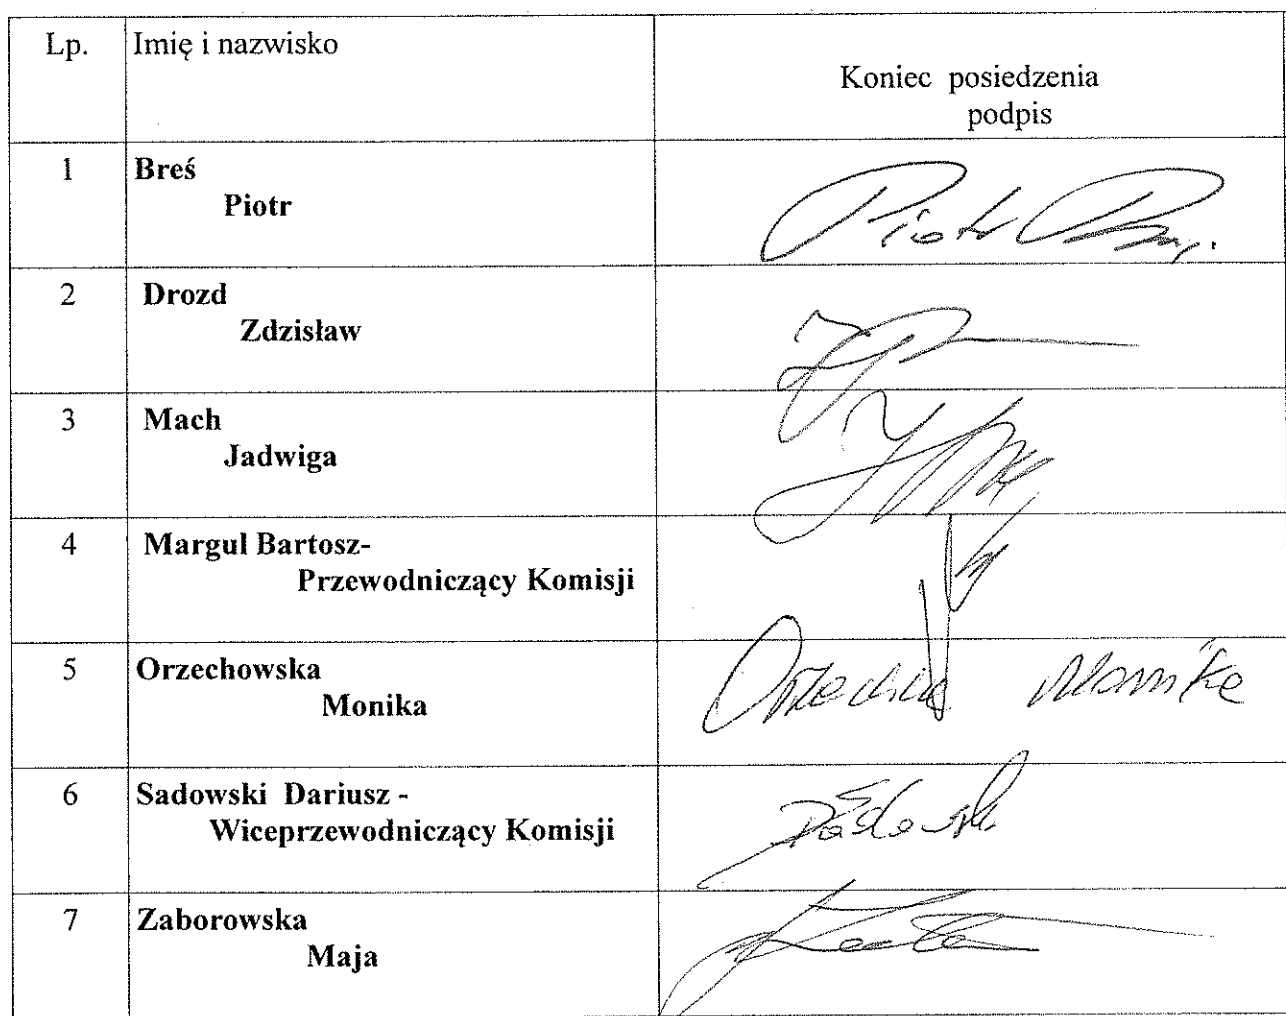 Lp.
Imię i nazwisko
Koniec posiedzenia
podpis
1
Breś
Piotr
Piotr
2
Drozd
Zdzisław
3
Mach
Jadwiga
4
Margul Bartosz-
Przewodniczący Komisji
5
Orzechowska
Monika
Monika
6
Sadowski Dariusz -
Wiceprzewodniczący Komisji
7
Zaborowska
Maja